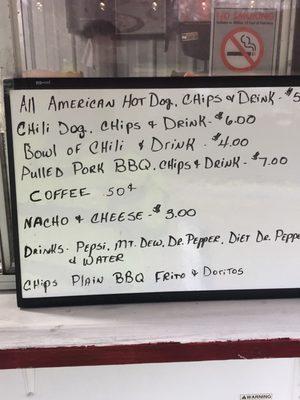 NO SMOKING
All AMERICAN HOT Dog, CHips & DRINK - $5
CHili Dog, CHips & DRINK - $6.00
Bowl of CHili & DRINK - $4.00
PULLED PORK BBQ, CHips & DRINK - $7.00
COFFEE 50¢
NACHO & CHEESE - $3.00
DRINKS - PEPSI, MT. DEW, DR. PEPPER, DIET DR. PEPPE
& WATER
CHIPS PLAIN BBQ FRITO & DORITOS
WARNING